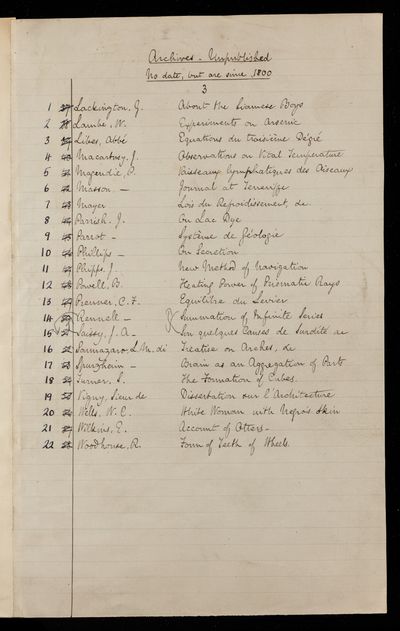 Archives - Unpublished
No date, but are since 1800
3
1 Lackington, G. About the Siamese Boys
2 Lambe, W. Experiments on Arsenic
3 Libes, Abbé Equations du troisième Dégré
4 Macartney, J. Observations on Vital Temperature
5 Magendie, Vaisseaux lymphatiques des Oiseaux
6 Masson, — Journal at Teneriffe
7 Mayer Lois du Refroidissement, &c.
8 Parrish, J. On Lac Dye
9 Parrot - Système de Géologie
10 Phillips — On Secretion
11 Phipps, J. New Method of Navigation
12 Powell, B. Heating Power of Prismatic Rays
13 Prenner, C. F. Equilibre du Levier
14 Rennell — Summation of Infinite Series
15 Saissy, J. A. Sur quelques Causes de Surdité &c
16 Sannazaro, L. M. di Treatise on Arches, &c
17 Spurgham — Brain as an Aggregation of Parts
18 Turner, S. The Formation of Cubes.
19 Vigny, Sieur de Dissertation sur l'Architecture
20 Wells, W. C. White Woman with Negro's Skin
21 Wilkins, E. Account of Otters -
22 Woodhouse, R. Form of Teeth of Wheels.